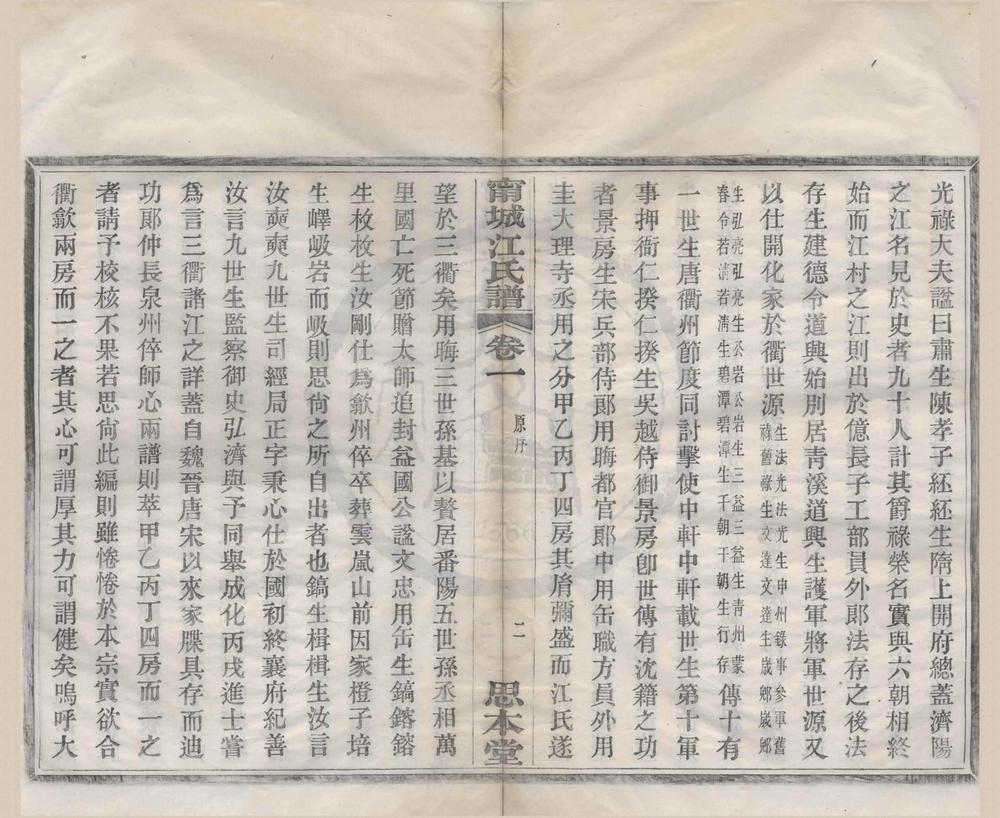 光祿大夫謚曰肅生陳孝子紑紑生隋上開府總蓋濟陽
之江名見於史者九十人計其爵祿榮名實與六朝相終
始而江村之江則出於億長子工部員外郎法存之後法
存生建德令道興始別居青溪道興生護軍將軍世源又
以仕開化家於衢世源生法光法光生申州錄事參軍舊祿舊祿生文達文達生崴鄉崴鄉
生弘亮弘亮生公岩公岩生三益三益生青州蒙春令若清若清生碧潭碧潭生千朝千朝生行存傳十有
一世生唐衢州節度同討擊使中軒中軒載世生第十軍
事押衙仁揆仁揆生吳越侍御景房卽世傳有沈籍之功
者景房生宋兵部侍郎用晦都官郎中用缶職方員外用
圭大理寺丞用之分甲乙丙丁四房其脣彌盛而江氏遂
甯城江氏譜 卷一 原序 二 思本堂
望於三衢矣用晦三世孫基以贅居番陽五世孫丞相萬
里國亡死節贈太師追封益國公謚文忠用缶生鎬鎔鎔
生枚枚生汝剛仕爲歙州倅卒葬雲嵐山前因家橙子培
生嶧岋岩而岋則思尙之所自出者也鎬生楫楫生汝言
汝奭奭九世生司經局正字秉心仕於國初終襄府紀善
汝言九世生監察御史弘濟與予同舉成化丙戌進士嘗
爲言三衢諸江之詳蓋自魏晉唐宋以來家牒具存而迪
功郎仲長泉州倅師心兩譜則萃甲乙丙丁四房而一之
者請予校核不果若思尙此編則雖惓惓於本宗實欲合
衢歙兩房而一之者其心可謂厚其力可謂健矣嗚呼大